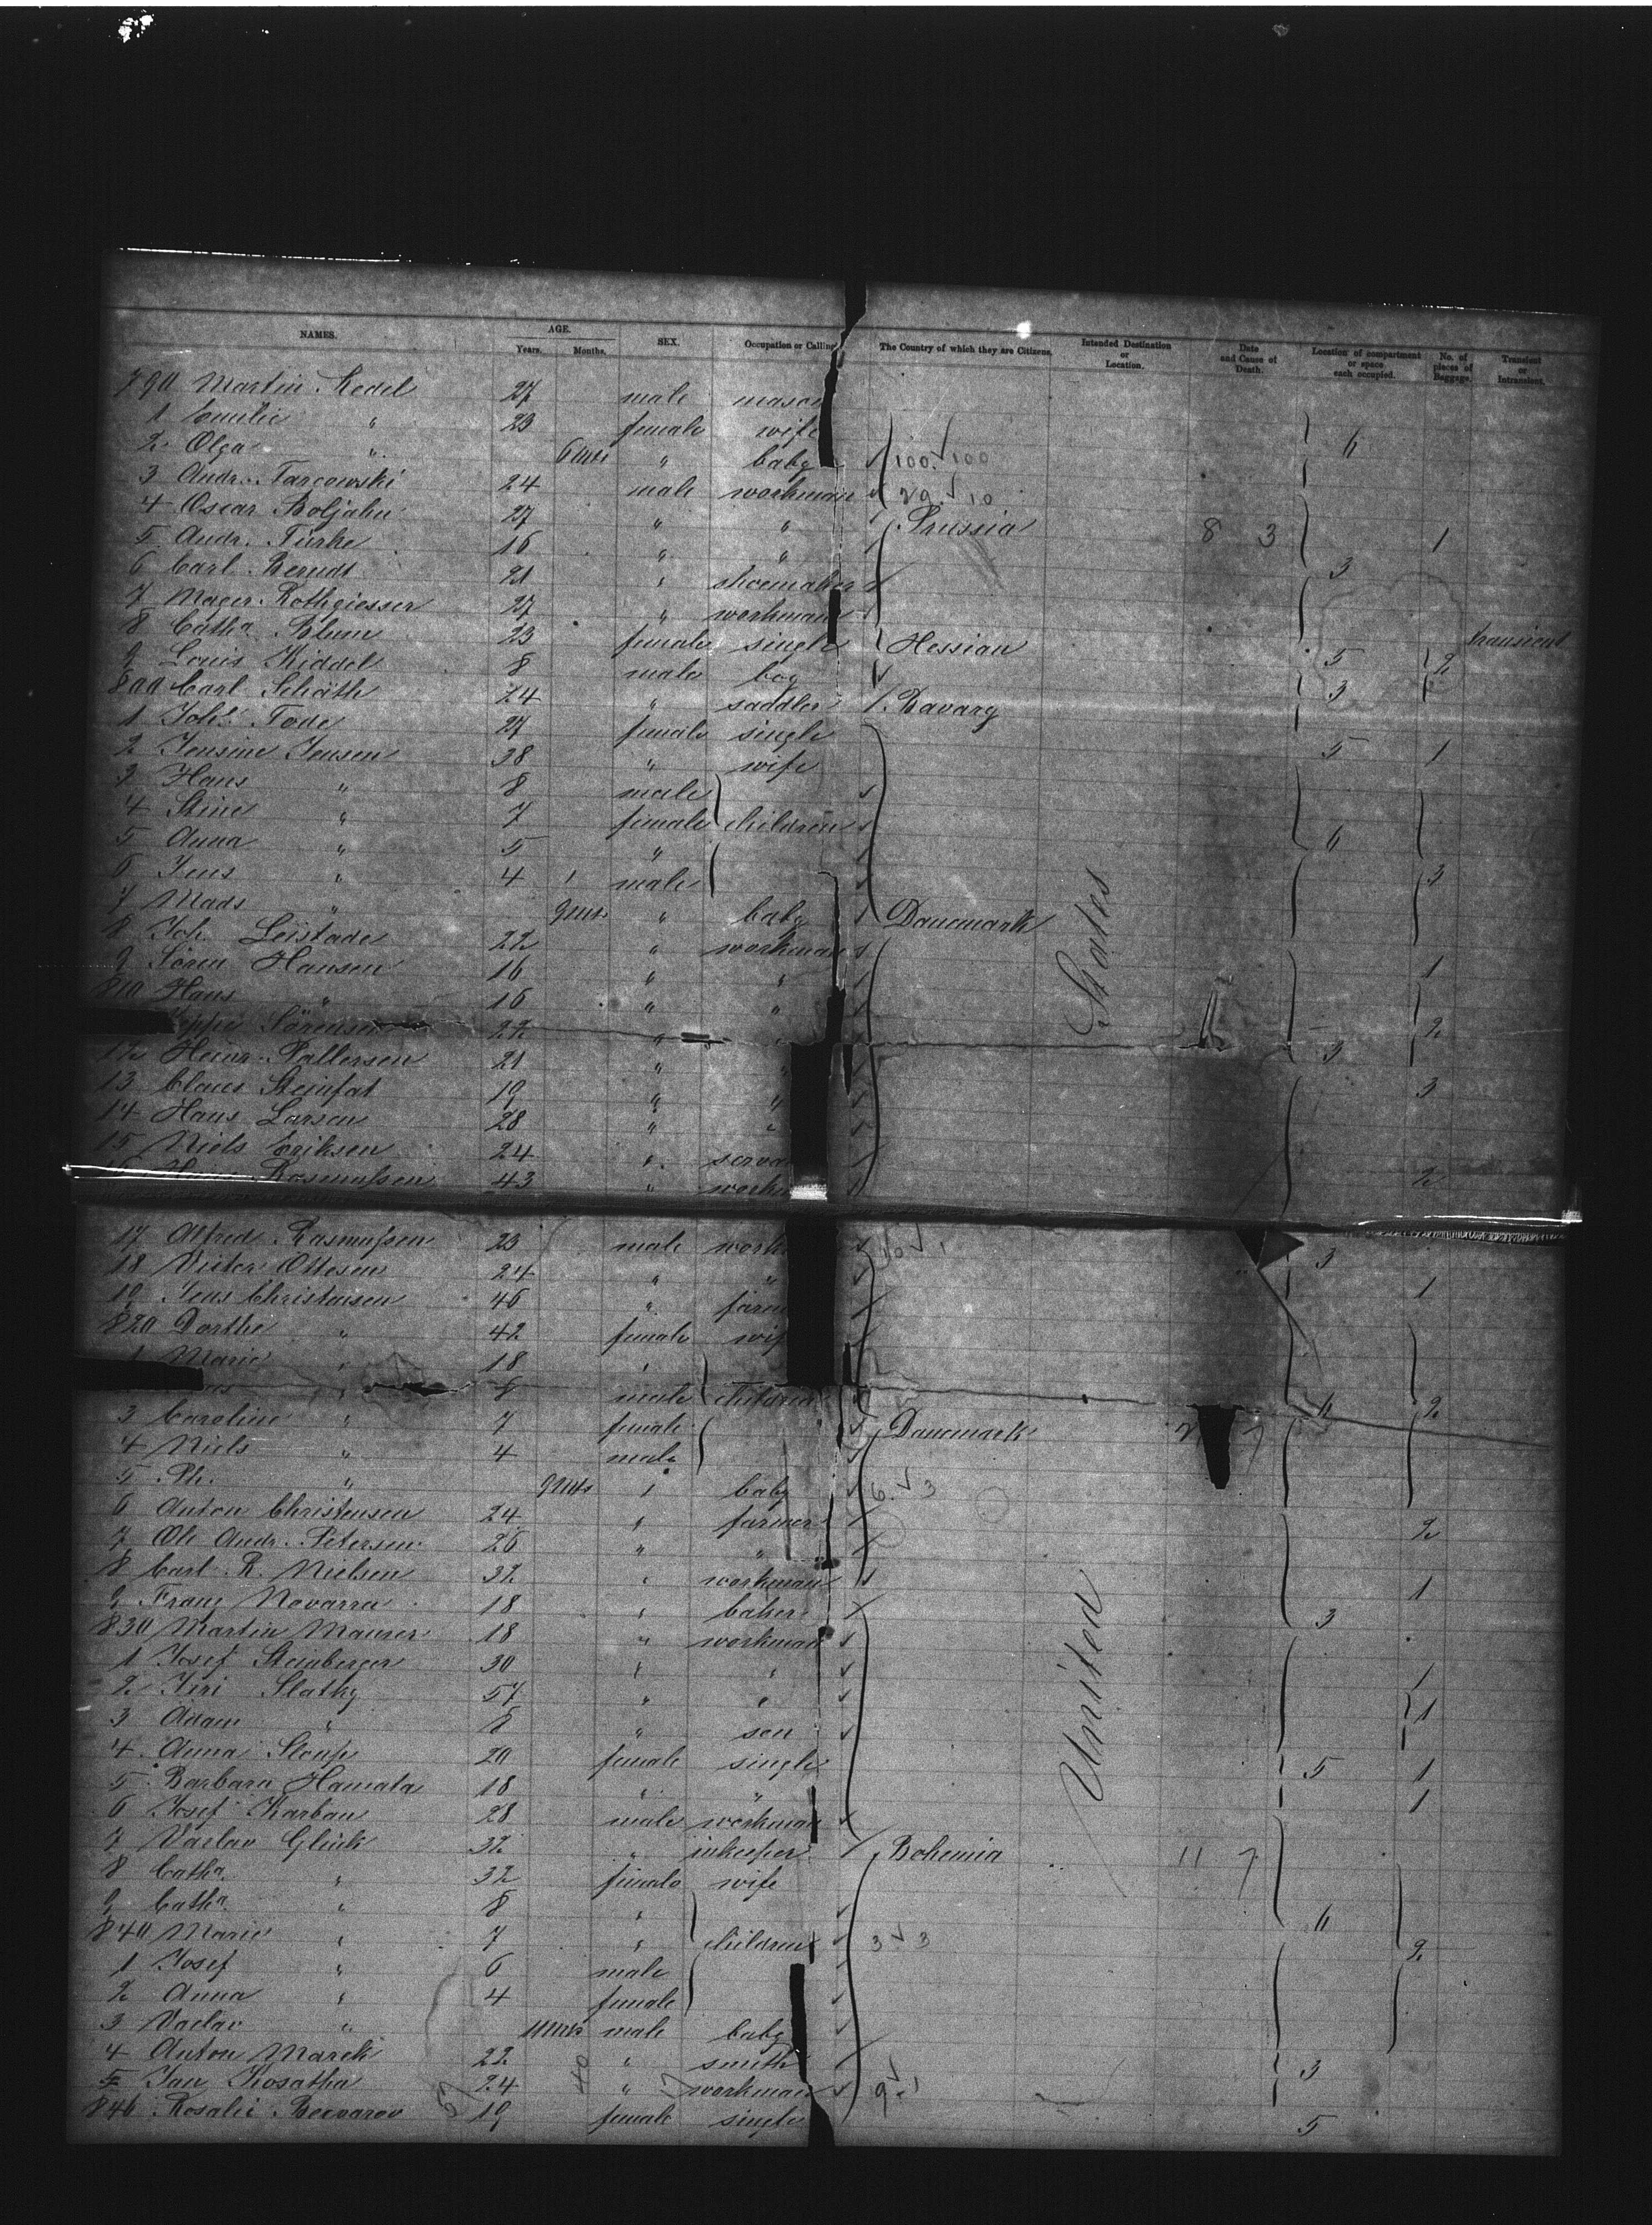 NAMES. AGE. SEX. Occupation or Calling The Country of which they are Citizens. Intended Destination or Location. Date and Cause of Death. Location of compartment or space each occupied. No. of pieces of Baggage. Transient or Intransient.
Years. Months.
790 Martin Redel 27 male mason
1 Emilie " 23 female wife 6
2 Olga " 6 mts " baby 100 100
3 Andr. Tarcowski 24 male workman 29 10
4 Oscar Boljahn 27 " " Prussia 8 3 1
5 Andr. Türke 16 " " 3
6 Carl Berndt 21 " shoemaker
7 Mager Rothgiesser 27 " workman
8 Cath.a Blum 23 female single Hessian 5 2 transient
9 Louis Kiddel 8 male boy 3
800 Carl Schäth 24 " saddler Bavary
1 Joh.s Tode 27 female single 5 1
2 Jensine Jensen 38 " wife
3 Hans " 8 male
4 Stine " 7 female children 6
5 Anna " 5 "
6 Jens " 4 male 3
7 Mads " 9 mts " baby Danemark
8 Joh. Leistade 22 " workman
9 Sören Hansen 16 " " 1
810 Hans " 16 " "
Sörensen 22 " 2
12 Heinr. Pallersen 21 " " 3
13 Claus Steinfat 19 " " 3
14 Hans Larsen 28 " "
15 Niels Eriksen 24 " serva
Rasmussen 43 " workm 2
17 Alfred Rasmussen 23 male work 10 1 3
18 Victor Ottesen 24 " " 1
19 Jens Christensen 46 " farm
820 Dorthe " 42 female wif
1 Marie " 18 "
" 8 male children 6 2
3 Caroline " 7 female Danemark
4 Niels " 4 male
5 Ph. " 9 mts " baby 6 3
6 Anton Christensen 24 " farmer 2
7 Ole Andr. Petersen 26 " "
8 Carl R. Nielsen 32 " workman 1
9 Franz Navarra 18 " baker 3
830 Martin Maurer 18 " workman
1 Josef Steinberger 30 " " 1
2 Jiri Slatky 57 " " 1
3 Adam " 8 " son
4 Anna Stoup 20 female single 5 1
5 Barbara Hamata 18 " " 1
6 Josef Karban 28 male workman
7 Vaclav Glück 32 " inkeeper Bohemia 11 7
8 Cath.a " 32 female wife
9 Cath.a " 8 " 6
840 Marie " 7 " children 3 3 2
1 Josef " 6 male
2 Anna " 4 female
3 Vaclav " 11 mts male baby
4 Anton Marek 22 " smith 3
5 Jan Kosatka 24 " workman 9 1
846 Rosalie Becvarov 19 female single 5
United States